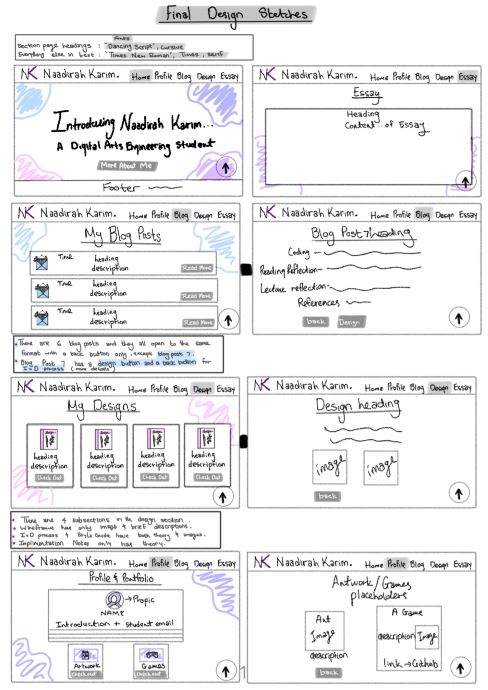 Final Design Sketches
Fonts
Section page headings : 'Dancing Script', cursive
Everything else in text : 'Times New Roman', Times, serif
NK Naadirah Karim. Home Profile Blog Design Essay
Introducing Naadirah Karim...
A Digital Arts Engineering Student
More About Me
Footer
NK Naadirah Karim. Home Profile Blog Design Essay
Essay
Heading
Content of Essay
NK Naadirah Karim. Home Profile Blog Design Essay
My Blog Posts
Time heading
description
Read More
Time heading
description
Read More
Time heading
description
Read More
NK Naadirah Karim. Home Profile Blog Design Essay
Blog Post 7 heading
Coding
Reading Reflection
Lecture reflection
References
back Design
There are 6 blog posts and they all open to the same
format with a back button only, except blog post 7.
Blog Post 7 has a design button and a back button for
IxD process (more details)
NK Naadirah Karim. Home Profile Blog Design Essay
My Designs
heading
description
Check Out
heading
description
Check Out
heading
description
Check Out
heading
description
Check Out
NK Naadirah Karim. Home Profile Blog Design Essay
Design heading
image image
back
There are 4 subsections in the design section.
Wireframe has only images & brief descriptions.
IxD process & Style Guide have both theory & images.
Implimentation Notes only has theory.
NK Naadirah Karim. Home Profile Blog Design Essay
Profile & Portfolio
→Propic
NAME
Introduction + student email
Artwork
Check out
Games
Check out
NK Naadirah Karim. Home Profile Blog Design Essay
Artwork/Games
placeholders
Art
Image
description
A Game
description Image
link → Github
back